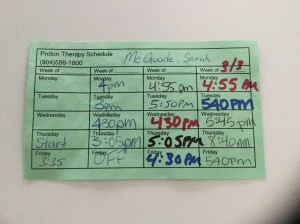 Proton Therapy Schedule
(904)588-1800
McQuade, Sarah
3/3
Week of Week of Week of Week of
Monday Monday Monday Monday
4pm 4:55pm 4:55 AM
Tuesday Tuesday Tuesday Tuesday
5pm 5:50pm 540PM
Wednesday Wednesday Wednesday Wednesday
430pm 430PM 5:45pm
Thursday Thursday Thursday Thursday
Start 5:05pm 5:05PM 8:40am
Friday Friday Friday Friday
3:35 OFF 4:30PM 540pm